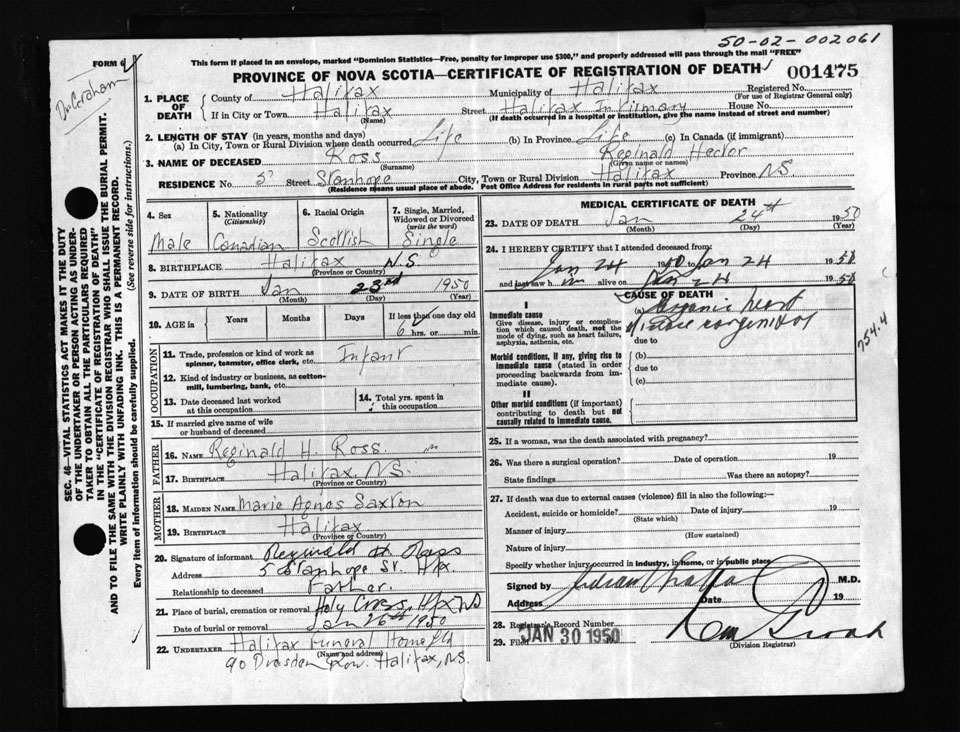 50-02-002061
FORM 6
This form if placed in an envelope, marked "Dominion Statistics—Free, penalty for improper use $300," and properly addressed will pass through the mail "FREE"
PROVINCE OF NOVA SCOTIA—CERTIFICATE OF REGISTRATION OF DEATH 001475
Dr. Graham
SEC. 46—VITAL STATISTICS ACT MAKES IT THE DUTY
OF THE UNDERTAKER OR PERSON ACTING AS UNDER-
TAKER TO OBTAIN ALL THE PARTICULARS REQUIRED
IN THE "CERTIFICATE OF REGISTRATION OF DEATH"
AND TO FILE THE SAME WITH THE DIVISION REGISTRAR WHO SHALL ISSUE THE BURIAL PERMIT.
WRITE PLAINLY WITH UNFADING INK. THIS IS A PERMANENT RECORD.
Every item of information should be carefully supplied. (See reverse side for instructions.)
1. PLACE OF DEATH
County of Halifax Municipality of Halifax Registered No.
(For use of Registrar General only)
If in City or Town Halifax Street Halifax Infirmary House No.
(Name) (If death occurred in a hospital or institution, give the name instead of street and number)
2. LENGTH OF STAY (in years, months and days)
(a) In City, Town or Rural Division where death occurred Life (b) In Province Life (c) In Canada (if immigrant)
3. NAME OF DECEASED Ross Reginald Hector
(Surname) (Given name or names)
RESIDENCE No. 5 Street Stanhope City, Town or Rural Division Halifax Province N.S.
(Residence means usual place of abode. Post Office Address for residents in rural parts not sufficient)
4. Sex
Male
5. Nationality
(Citizenship)
Canadian
6. Racial Origin
Scottish
7. Single, Married,
Widowed or Divorced
(write the word)
Single
8. BIRTHPLACE Halifax N.S.
(Province or Country)
9. DATE OF BIRTH Jan 23rd 1950
(Month) (Day) (Year)
10. AGE in
Years Months Days If less than one day old
6 hrs. or min.
OCCUPATION
11. Trade, profession or kind of work as
spinner, teamster, office clerk, etc. Infant
12. Kind of industry or business, as cotton-
mill, lumbering, bank, etc.
13. Date deceased last worked
at this occupation
14. Total yrs. spent in
this occupation
15. If married give name of wife
or husband of deceased
FATHER
16. NAME Reginald H. Ross
17. BIRTHPLACE Halifax, N.S.
(Province or Country)
MOTHER
18. MAIDEN NAME Marie Agnes Saxton
19. BIRTHPLACE Halifax
(Province or Country)
20. Signature of informant Reginald H Ross
Address 5 Stanhope St. Hfx.
Relationship to deceased Father.
21. Place of burial, cremation or removal Holy Cross, Hfx NS
Date of burial or removal Jan 26th 1950
22. UNDERTAKER Halifax Funeral Home Ltd
(Name and address)
90 Dresden Row. Halifax, N.S.
MEDICAL CERTIFICATE OF DEATH
23. DATE OF DEATH Jan 24th 1950
(Month) (Day) (Year)
24. I HEREBY CERTIFY that I attended deceased from:
Jan 24 1950 to Jan 24 1950
and last saw h im alive on Jan 24 1950
CAUSE OF DEATH
I
Immediate cause
Give disease, injury or complica-
tion which caused death, not the
mode of dying, such as heart failure,
asphyxia, asthenia, etc.
(a) Organic heart
disease congenital
754.4
due to
Morbid conditions, if any, giving rise to
immediate cause (stated in order
proceeding backwards from im-
mediate cause).
(b)
due to
(c)
II
Other morbid conditions (if important)
contributing to death but not
causally related to immediate cause.
25. If a woman, was the death associated with pregnancy?
26. Was there a surgical operation? Date of operation 19
State findings Was there an autopsy?
27. If death was due to external causes (violence) fill in also the following:—
Accident, suicide or homicide? Date of injury 19
(State which)
Manner of injury
(How sustained)
Nature of injury
Specify whether injury occurred in industry, in home, or in public place
Signed by M.D.
Address Date 19
28. Registrar's Record Number
29. Filed JAN 30 1950
(Division Registrar)